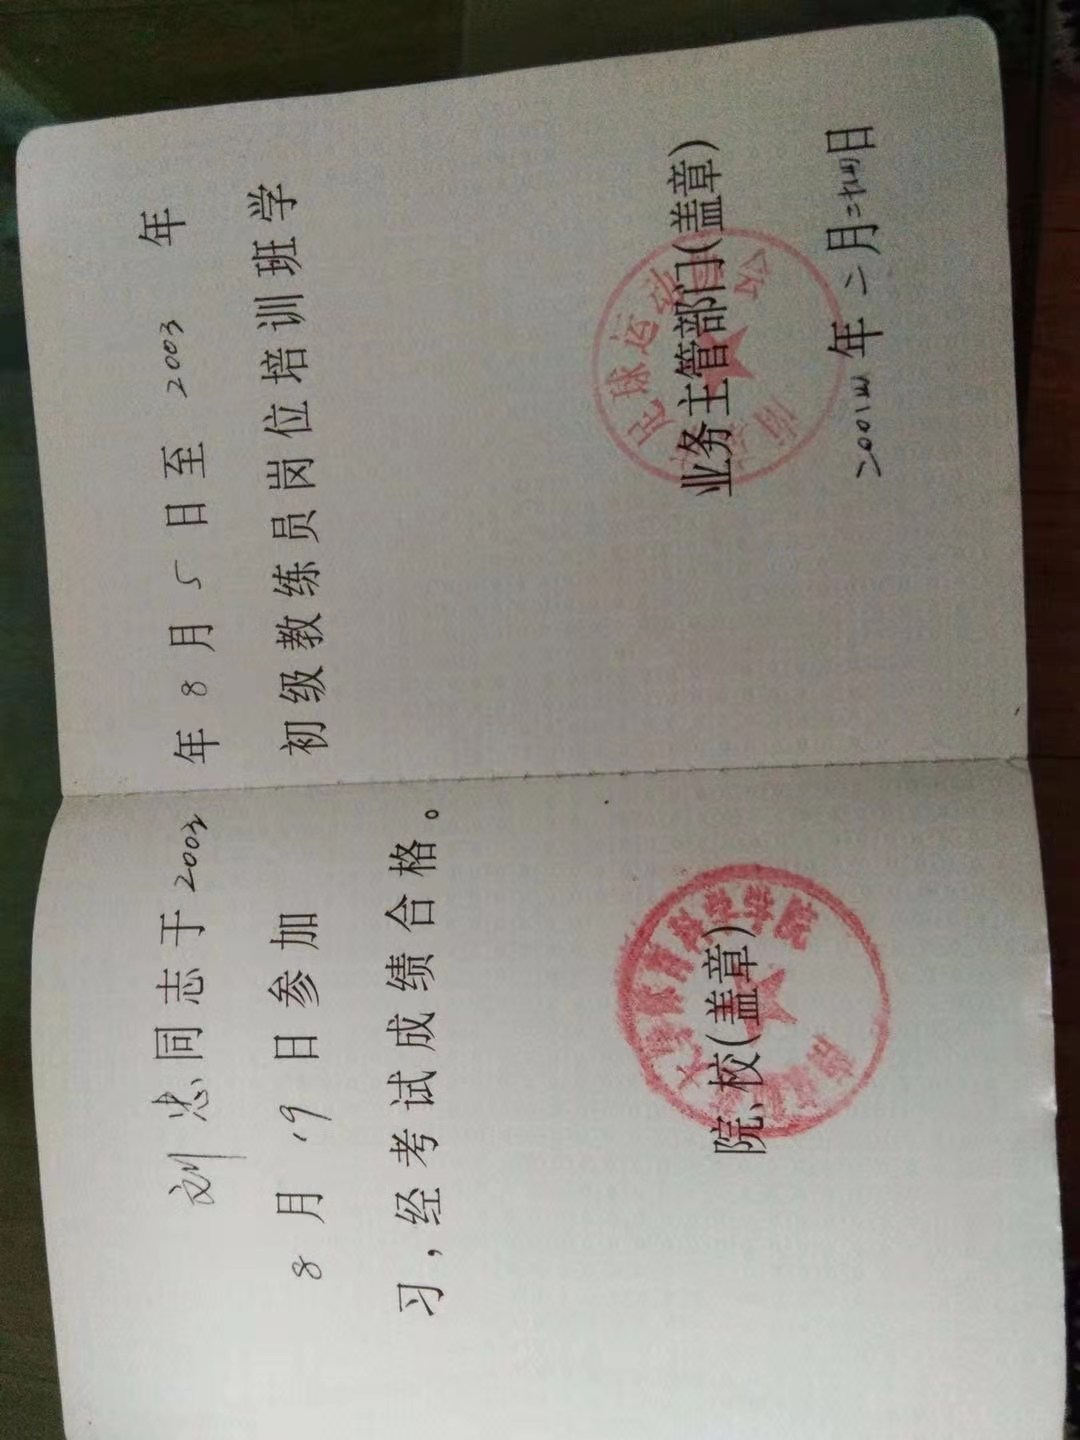 刘忠同志于2003年8月5日至2003年
8月19日参加初级教练员岗位培训班学
习，经考试成绩合格。
院、校(盖章)
业务主管部门(盖章)
足球运动
二00四年二月二十四日